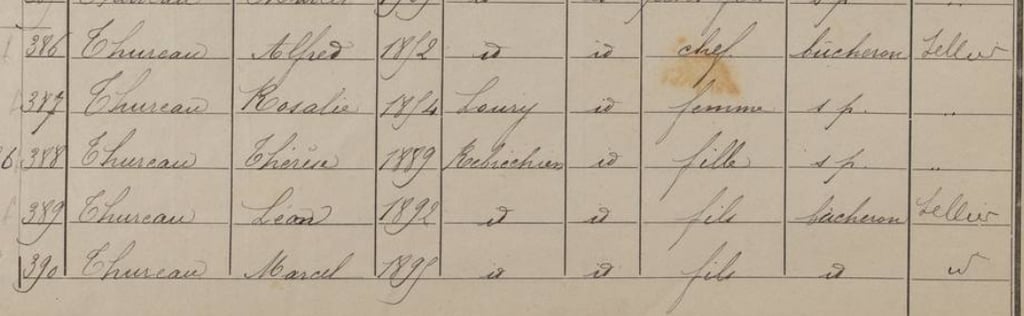 386 Thureau Alfred 1852 id id chef bûcheron Tellier
387 Thureau Rosalie 1854 Loury id femme s p. "
388 Thureau Thérèse 1889 Rebrechien id fille s p. "
389 Thureau Léon 1892 id id fils bûcheron Tellier
390 Thureau Marcel 1895 id id fils id id